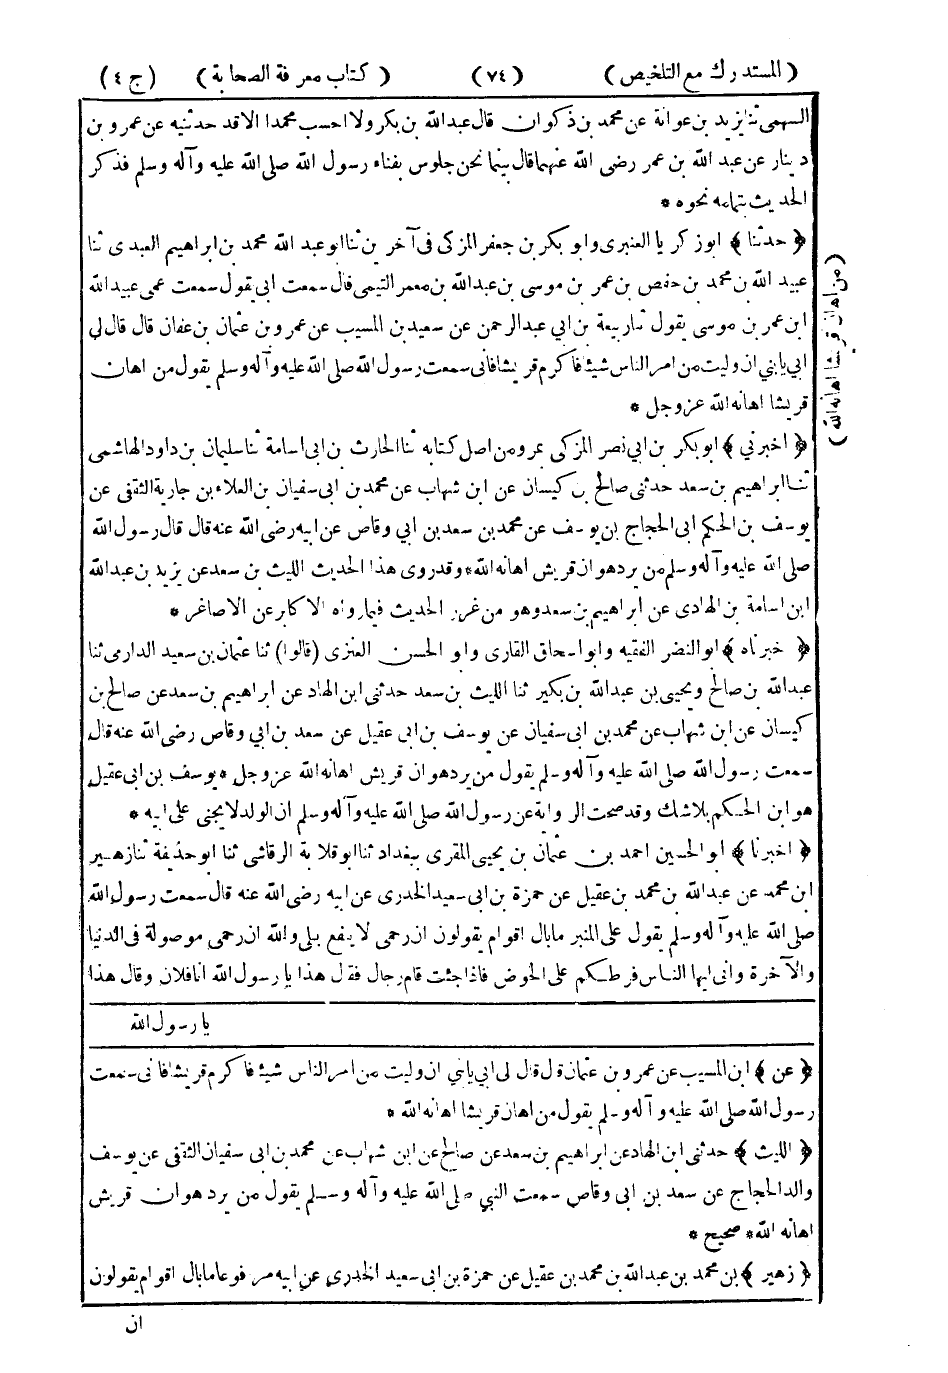 (المستدرك مع التلخيص) (٧٤) (كتاب معرفة الصحابة) (ج ٤)
السهمى ثنا يزيد بن عوانة عن محمد بن ذكوان قال عبد الله بن بكر ولا احسب محمدا الا قد حدثنيه عن عمرو بن
دينار عن عبد الله بن عمر رضى الله عنهما قال بينما نحن جلوس بفناء رسول الله صلى الله عليه وآله وسلم فذكر
الحديث بتمامه نحوه *
﴿ حدثنا ﴾ ابو زكريا العنبرى وابو بكر بن جعفر المزكى فى آخرين ثنا ابو عبد الله محمد بن ابراهيم العبدى ثنا
عبيد الله بن محمد بن حفص بن عمر بن موسى بن عبد الله بن معمر التيمى قال سمعت ابى يقول سمعت عمى عبيد الله
ابن عمر بن موسى يقول ثنا ربيعة بن ابي عبد الرحمن عن سعيد بن المسيب عن عمرو بن عثمان بن عفان قال قال لي
ابي يا بني ان وليت من امر الناس شيئا فاكرم قريشا فانى سمعت رسول الله صلى الله عليه وآله وسلم يقول من اهان
قريشا اهانه الله عز وجل *
(من اهان قريشا اهانه الله)
﴿ اخبرني ﴾ ابو بكر بن ابي نصر المزكى بمرو من اصل كتابه ثنا الحارث بن ابى اسامة ثنا سليمان بن داود الهاشمى
ثنا ابراهيم بن سعد حدثنى صالح بن كيسان عن ابن شهاب عن محمد بن ابى سفيان بن العلاء بن جارية الثقفى عن
يوسف بن الحكم ابى الحجاج بن يوسف عن محمد بن سعد بن ابي وقاص عن ابيه رضى الله عنه قال قال رسول الله
صلى الله عليه وآله وسلم من يرد هوان قريش اهانه الله * وقد روى هذا الحديث الليث بن سعد عن يزيد بن عبد الله
ابن اسامة بن الهادى عن ابراهيم بن سعد وهو من غرر الحديث فيما رواه الاكابر عن الاصاغر *
﴿ خبرناه ﴾ ابو النضر الفقيه وابو اسحاق القارى وابو الحسن العنزى (قالوا) ثنا عثمان بن سعيد الدارمى ثنا
عبد الله بن صالح ويحيى بن عبد الله بن بكير ثنا الليث بن سعد حدثنى ابن الهاد عن ابراهيم بن سعد عن صالح بن
كيسان عن ابن شهاب عن محمد بن ابى سفيان عن يوسف بن ابى عقيل عن سعد بن ابي وقاص رضى الله عنه قال
سمعت رسول الله صلى الله عليه وآله وسلم يقول من يرد هوان قريش اهانه الله عز وجل * يوسف بن ابى عقيل
هو ابن الحكم بلا شك وقد صحت الرواية عن رسول الله صلى الله عليه وآله وسلم ان الولد لا يجنى على ابيه *
﴿ اخبرنا ﴾ ابو الحسين احمد بن عثمان بن يحيى المقرى ببغداد ثنا ابو قلابة الرقاشى ثنا ابو حذيفة ثنا زهير
ابن محمد عن عبد الله بن محمد بن عقيل عن حمزة بن ابى سعيد الخدرى عن ابيه رضى الله عنه قال سمعت رسول الله
صلى الله عليه وآله وسلم يقول على المنبر ما بال اقوام يقولون ان رحمى لا ينفع بلى والله ان رحمى موصولة فى الدنيا
والآخرة وانى ايها الناس فرطكم على الحوض فاذا جئت قام رجال فقال هذا يا رسول الله انا فلان وقال هذا
يا رسول الله
﴿ عن ﴾ ابن المسيب عن عمرو بن عثمان قال قال لى ابى يا بني ان وليت من امر الناس شيئا فاكرم قريشا فانى سمعت
رسول الله صلى الله عليه وآله وسلم يقول من اهان قريشا اهانه الله *
﴿ الليث ﴾ حدثنى ابن الهاد عن ابراهيم بن سعد عن صالح عن ابن شهاب عن محمد بن ابى سفيان الثقفى عن يوسف
والد الحجاج عن سعد بن ابى وقاص سمعت النبي صلى الله عليه وآله وسلم يقول من يرد هوان قريش
اهانه الله * صحيح *
﴿ زهير ﴾ بن محمد بن عبد الله بن محمد بن عقيل عن حمزة بن ابى سعيد الخدرى عن ابيه مرفوعا ما بال اقوام يقولون
ان